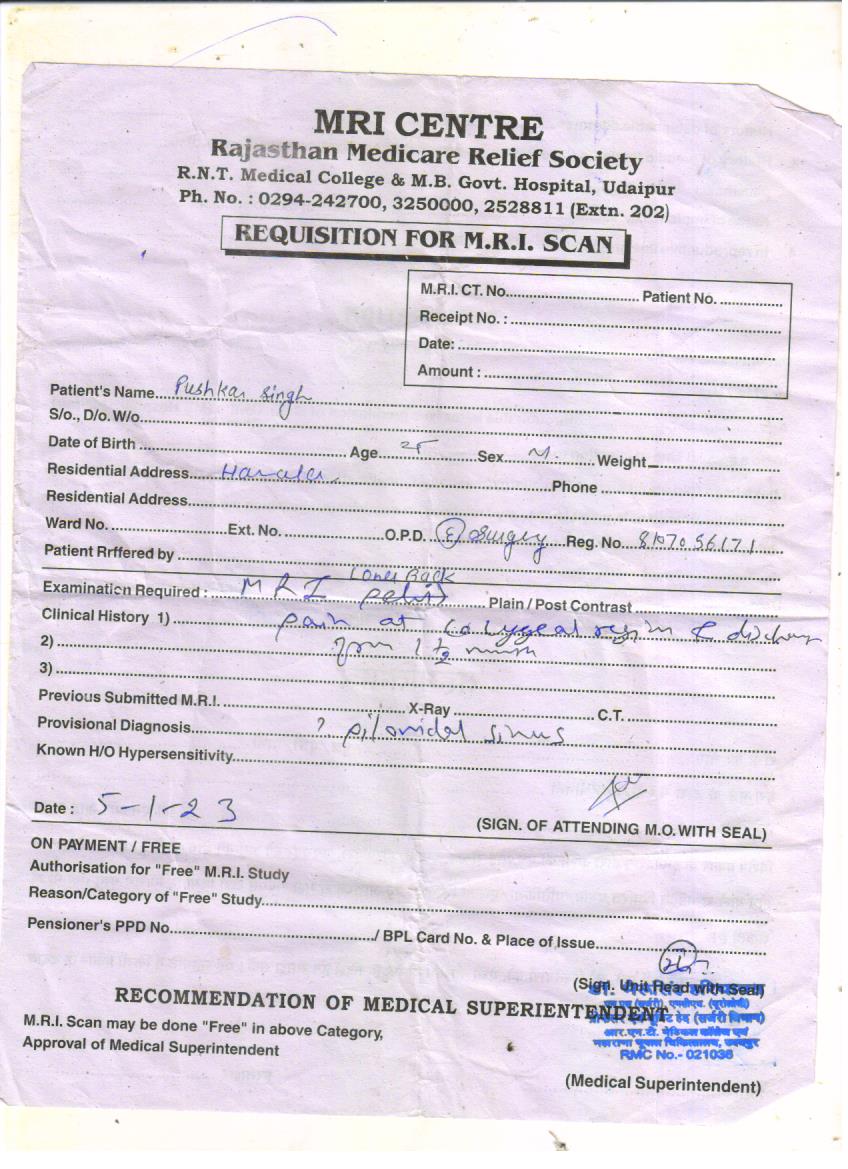 MRI CENTRE
Rajasthan Medicare Relief Society
R.N.T. Medical College & M.B. Govt. Hospital, Udaipur
Ph. No. : 0294-242700, 3250000, 2528811 (Extn. 202)
REQUISITION FOR M.R.I. SCAN
M.R.I. CT. No. Patient No.
Receipt No. :
Date:
Amount :
Patient's Name Pushkar Singh
S/o., D/o. W/o.
Date of Birth Age 25 Sex M. Weight
Residential Address Phone
Residential Address
Ward No. Ext. No. O.P.D. E Surgery Reg. No. 8107056171
Patient Rrffered by
Lower Back
Examination Required : MRI pelvis Plain / Post Contrast
Clinical History 1) pain at region
2) from 1 1/2 month
3)
Previous Submitted M.R.I. X-Ray C.T.
Provisional Diagnosis ? pilonidal sinus
Known H/O Hypersensitivity
Date : 5-1-23
(SIGN. OF ATTENDING M.O. WITH SEAL)
ON PAYMENT / FREE
Authorisation for "Free" M.R.I. Study
Reason/Category of "Free" Study
Pensioner's PPD No. / BPL Card No. & Place of Issue
(Sign. Unit Read with Seal)
RECOMMENDATION OF MEDICAL SUPERIENTENDENT
M.R.I. Scan may be done "Free" in above Category,
Approval of Medical Superintendent
आर.एन.टी. मेडिकल कॉलेज एवं
महाराणा भूपाल चिकित्सालय, उदयपुर
RMC No.- 021036
(Medical Superintendent)